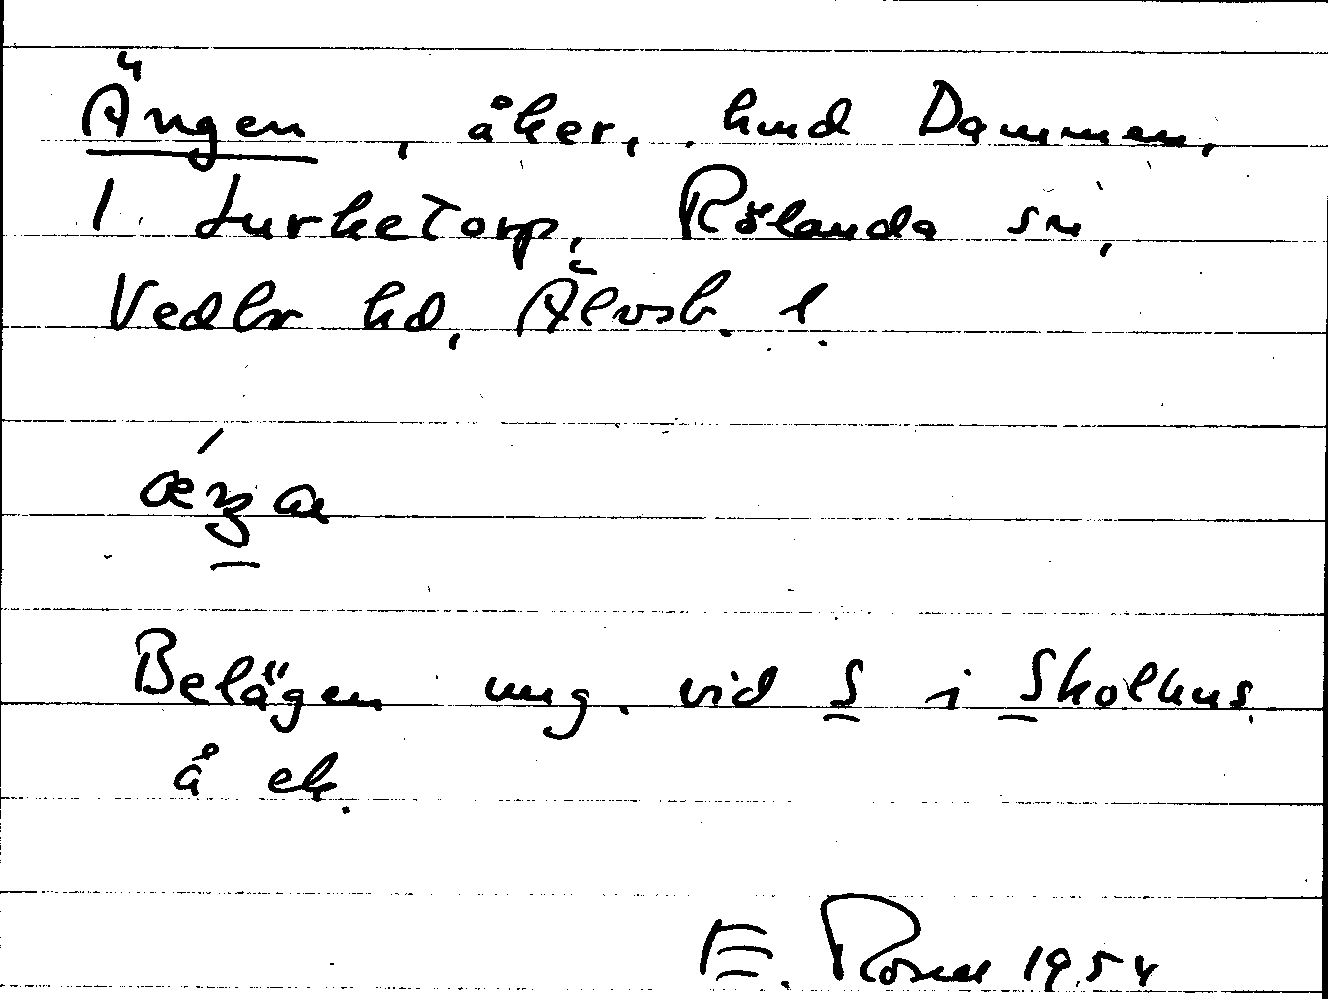 Ängen, åker, hmd Dammen,
1 Lurketorp, Rölanda sn,
Vedbo hd, Älvsb. l.
Belägen ung. vid S i Skolhus
å ek.
E. Rosell 1954